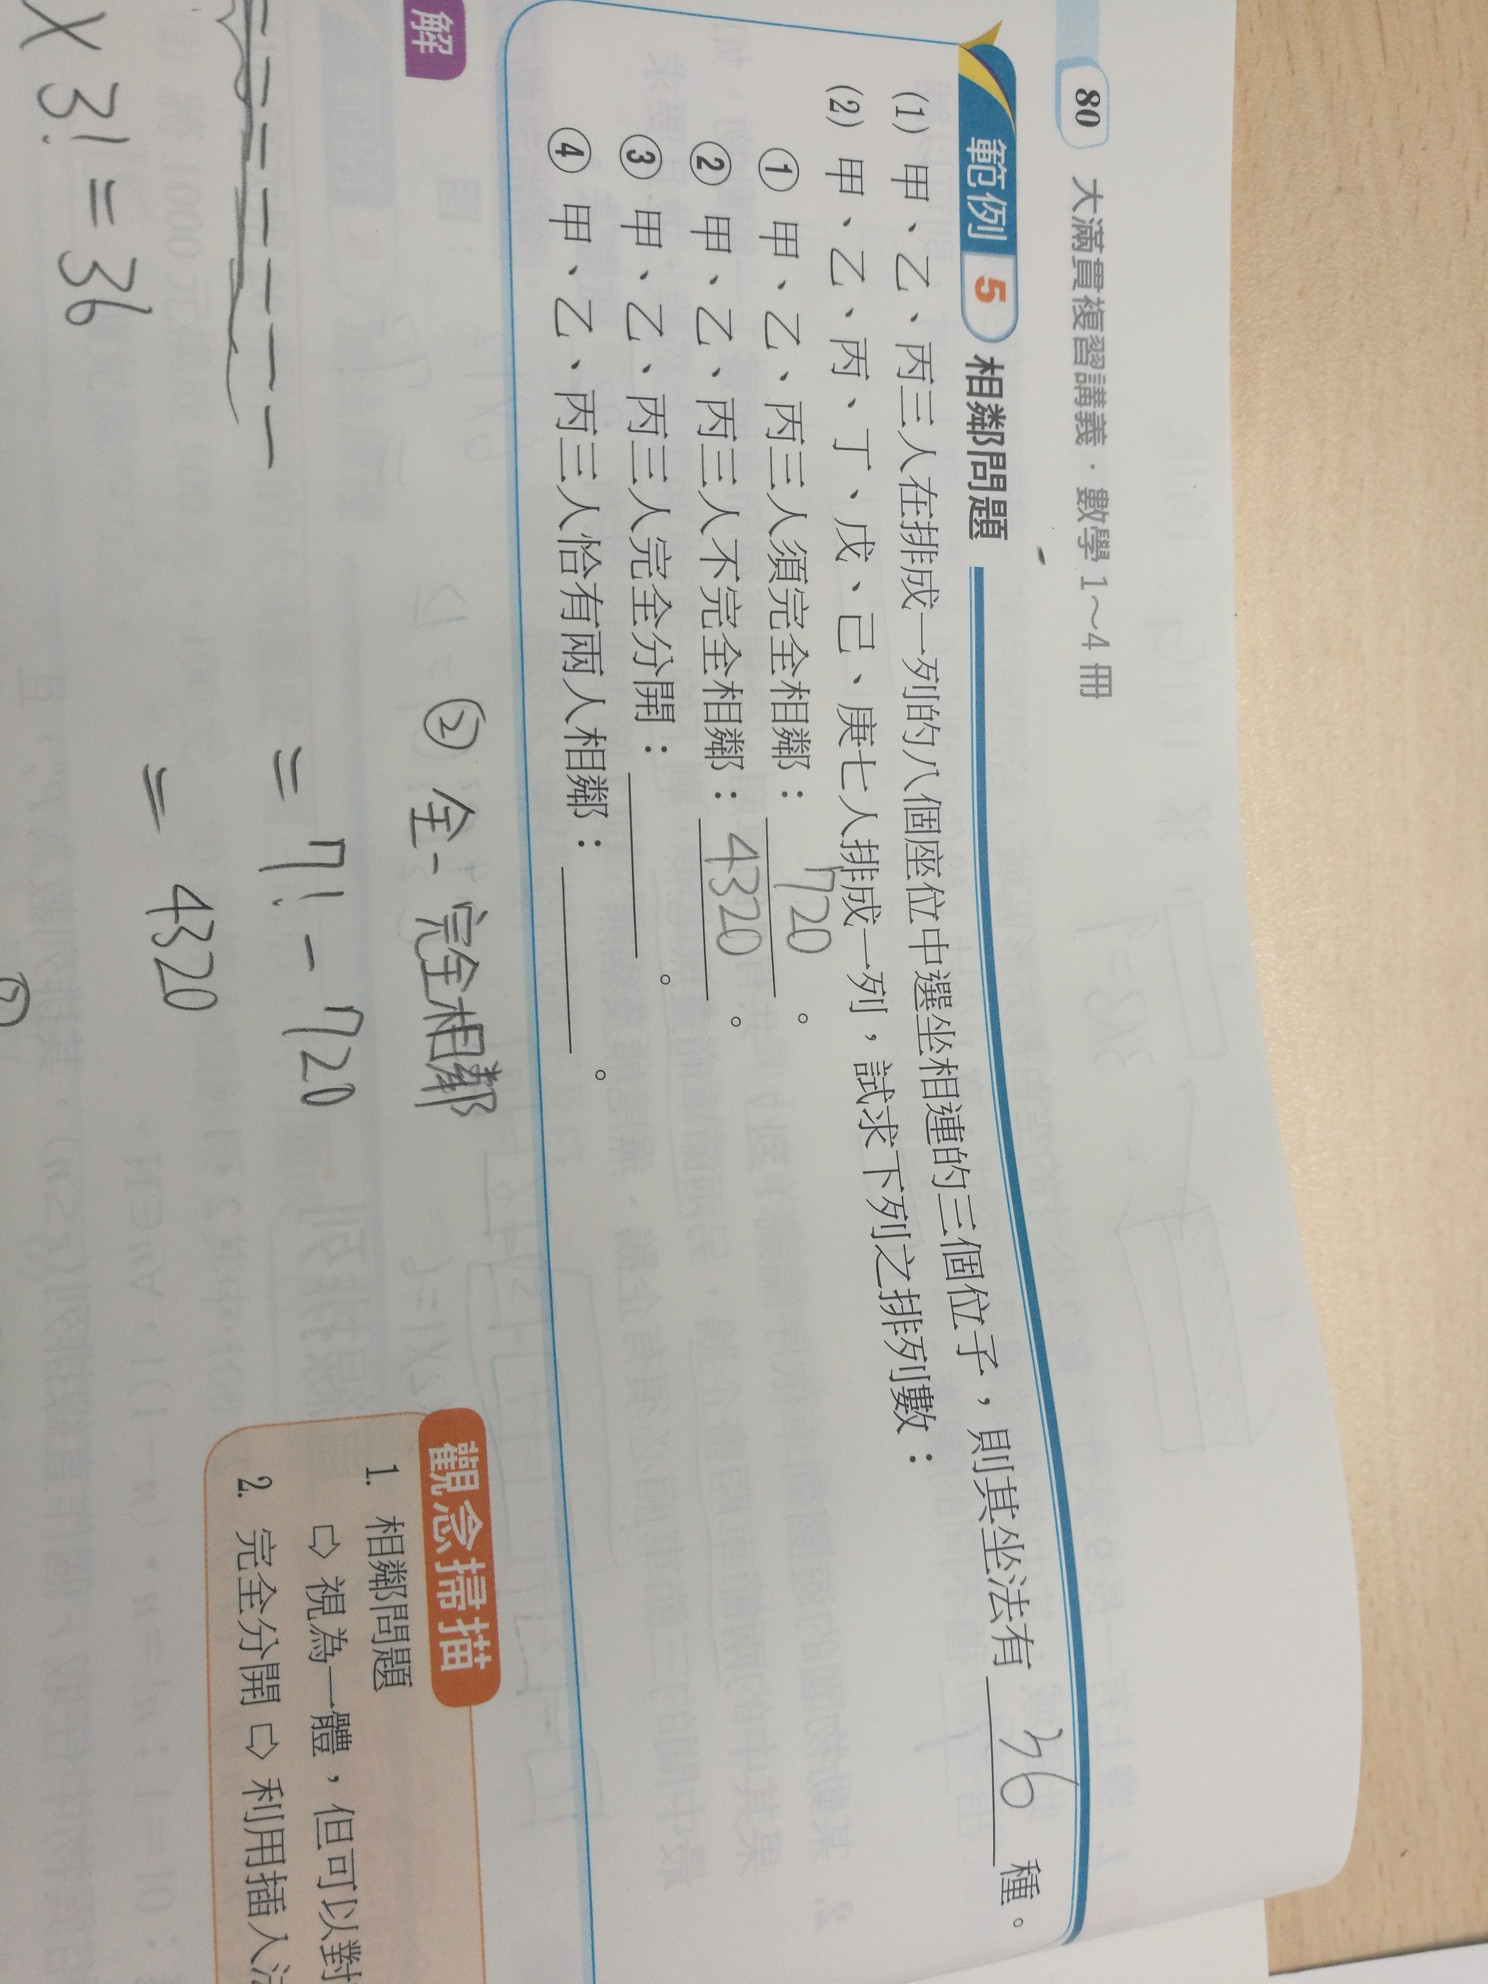 80 大滿貫複習講義．數學 1～4 冊
範例 5 相鄰問題
(1) 甲、乙、丙三人在排成一列的八個座位中選坐相連的三個位子，則其坐法有 36 種。
(2) 甲、乙、丙、丁、戊、己、庚七人排成一列，試求下列之排列數：
① 甲、乙、丙三人須完全相鄰：720。
② 甲、乙、丙三人不完全相鄰：4320。
③ 甲、乙、丙三人完全分開：＿＿＿。
④ 甲、乙、丙三人恰有兩人相鄰：＿＿＿。
解
② 全-完全相鄰
= 7! - 720
= 4320
X 3! = 36
觀念掃描
1. 相鄰問題
⇨ 視為一體，但可以對
2. 完全分開 ⇨ 利用插入法